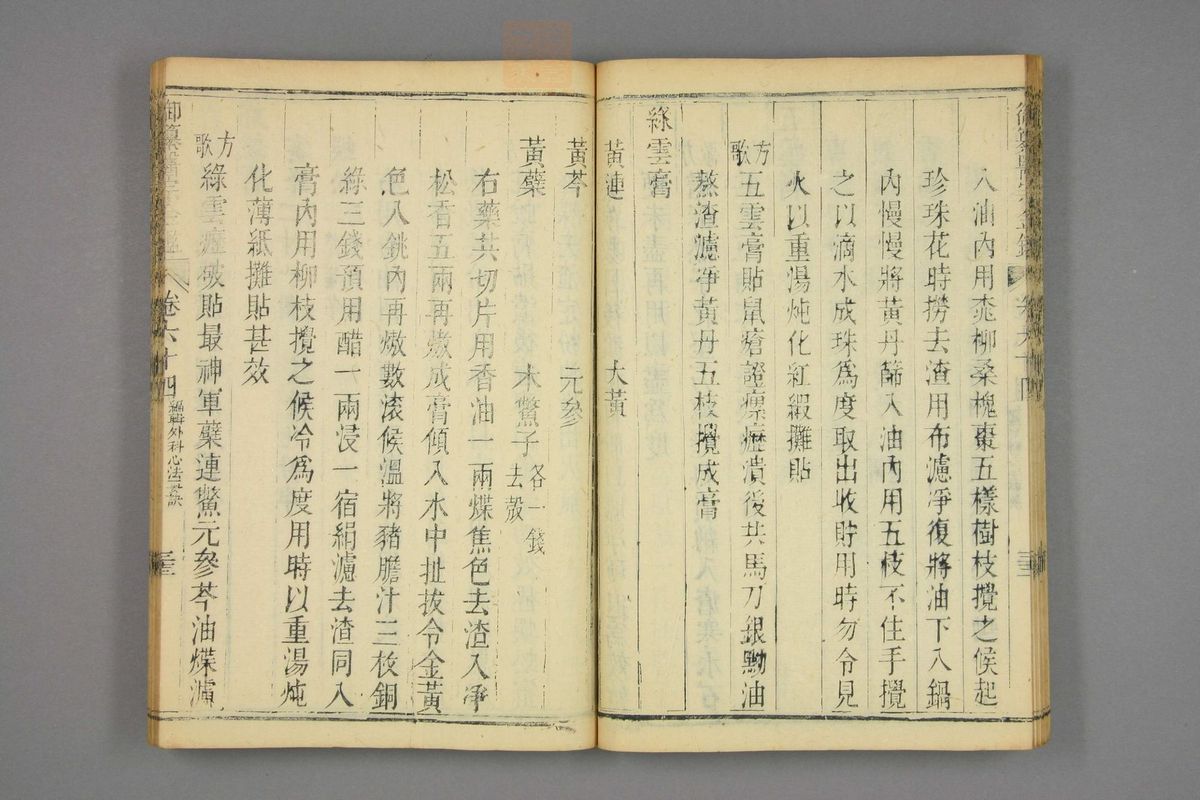 入油內用桃柳桑槐棗五樣樹枝攪之候起
珍珠花時撈去渣用布濾淨復將油下入鍋
內慢慢將黃丹篩入油內用五枝不住手攪
之以滴水成珠為度取出收貯用時勿令見
火以重湯炖化紅緞攤貼
方歌 五雲膏貼鼠瘡證瘰癧潰後共馬刀銀黝油
熬渣濾淨黃丹五枝攪成膏
綠雲膏
黃連 大黃
黃芩 元參
黃蘗 木鱉子 去殼 各一錢
右藥共切片用香油一兩煠焦色去渣入淨
松香五兩再熬成膏傾入水中扯拔令金黃
色入銚內再熬數滾候溫將豬膽汁三枚銅
綠三錢預用醋一兩浸一宿絹濾去渣同入
膏內用柳枝攪之候冷為度用時以重湯炖
化薄紙攤貼甚效
方歌 綠雲癧破貼最神軍蘗連鱉元參芩油煠濾
卷六十四 編輯外科心法要訣 三三